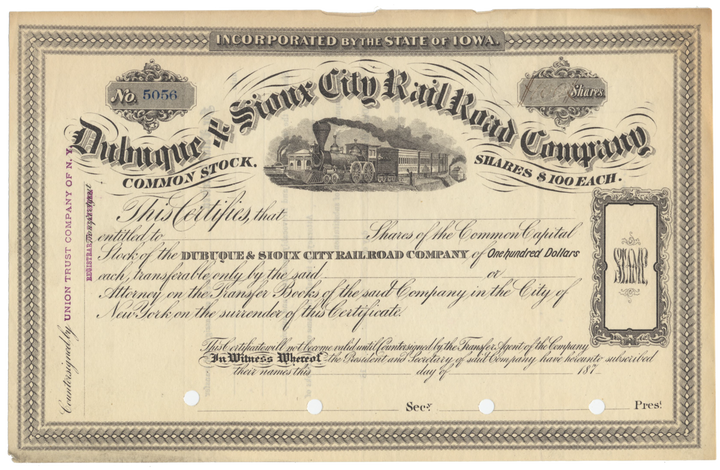 INCORPORATED BY THE STATE OF IOWA.
No. 5056
Shares.
Dubuque & Sioux City Rail Road Company
COMMON STOCK.
SHARES $100 EACH.
This Certifies, that
entitled to Shares of the Common Capital
Stock of the DUBUQUE & SIOUX CITY RAIL ROAD COMPANY of One hundred Dollars
each, transferable only by the said or
Attorney on the Transfer Books of the said Company in the City of
New York on the surrender of this Certificate.
This Certificate will not become valid until Countersigned by the Transfer Agent of the Company
In Witness Whereof the President and Secretary of said Company have hereunto subscribed
their names this day of 187
Secy.
Prest.
Countersigned by UNION TRUST COMPANY OF N.Y.
REGISTRAR